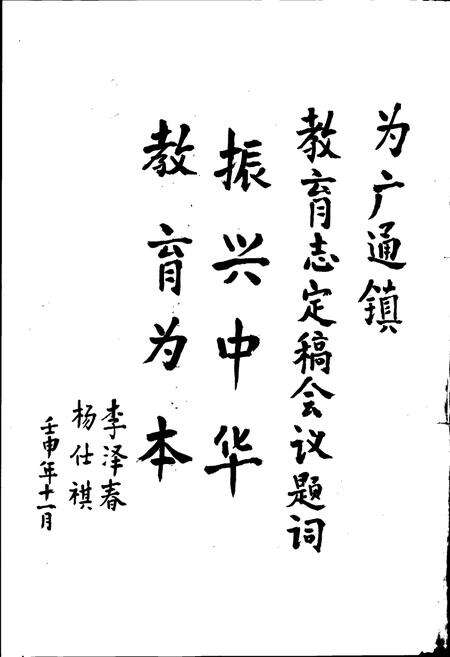 为广通镇
教育志定稿会议题词
振兴中华
教育为本
李泽春
杨仕祺
壬申年十一月